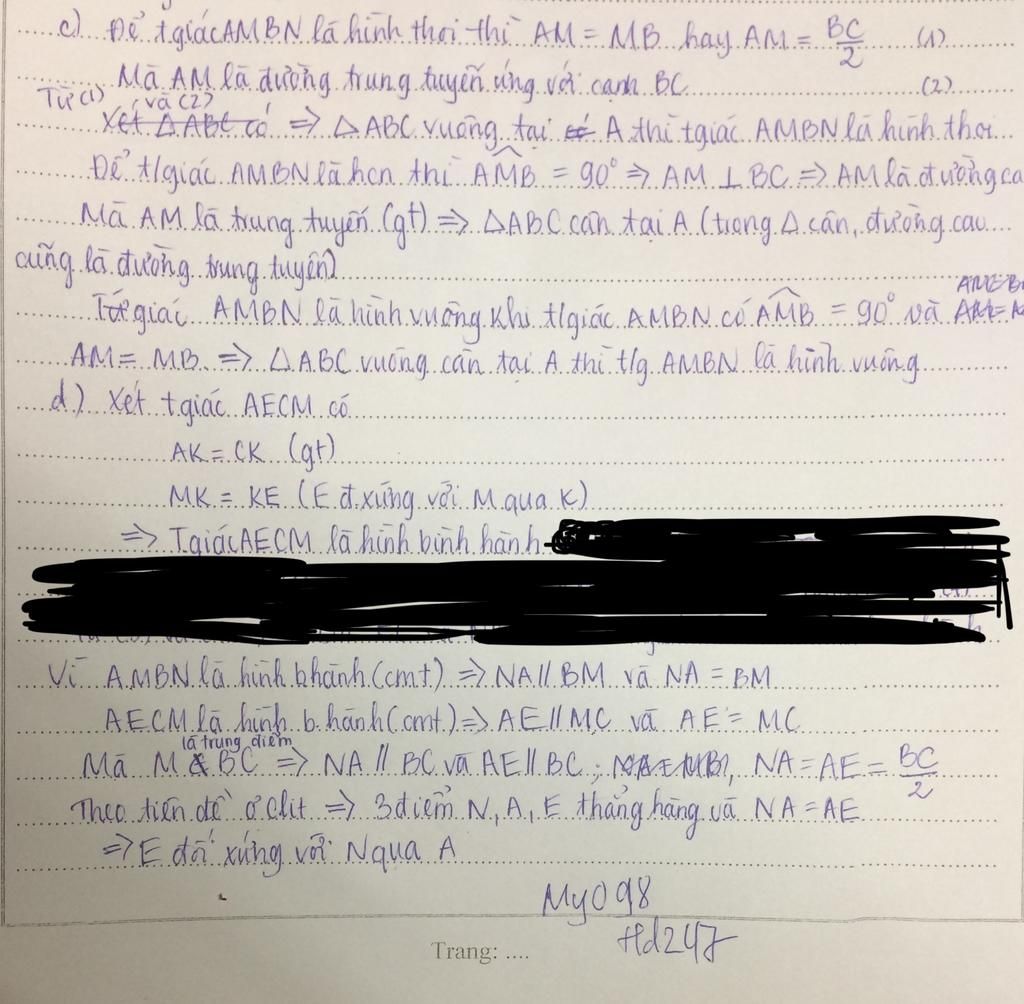 c) Để tgiác AMBN là hình thoi thì AM = MB hay AM = BC/2 (1)
Mà AM là đường trung tuyến ứng với cạnh BC (2)
Từ (1) và (2)
Xét △ABC có => △ABC vuông tại A thì tgiác AMBN là hình thoi
Để t/giác AMBN là hcn thì AMB = 90° => AM ⊥ BC => AM là đường ca
Mà AM là trung tuyến (gt) => △ABC cân tại A (trong △ cân, đường cao
cũng là đường trung tuyến)
Tứ giác AMBN là hình vuông khi t/giác AMBN có AMB = 90° và
AM = MB => △ABC vuông cân tại A thì t/g AMBN là hình vuông
d) Xét tgiác AECM có
AK = CK (gt)
MK = KE (E đ.xứng với M qua K)
=> Tgiác AECM là hình bình hành
Vì AMBN là hình b hành (cmt) => NA // BM và NA = BM
AECM là hình b. hành (cmt) => AE // MC và AE = MC
Mà M là trung điểm BC => NA // BC và AE // BC ; NA = AE = BC/2
Theo tiên đề Ơ clit => 3 điểm N, A, E thẳng hàng và NA = AE
=> E đối xứng với N qua A
My098
Hd247
Trang: ....